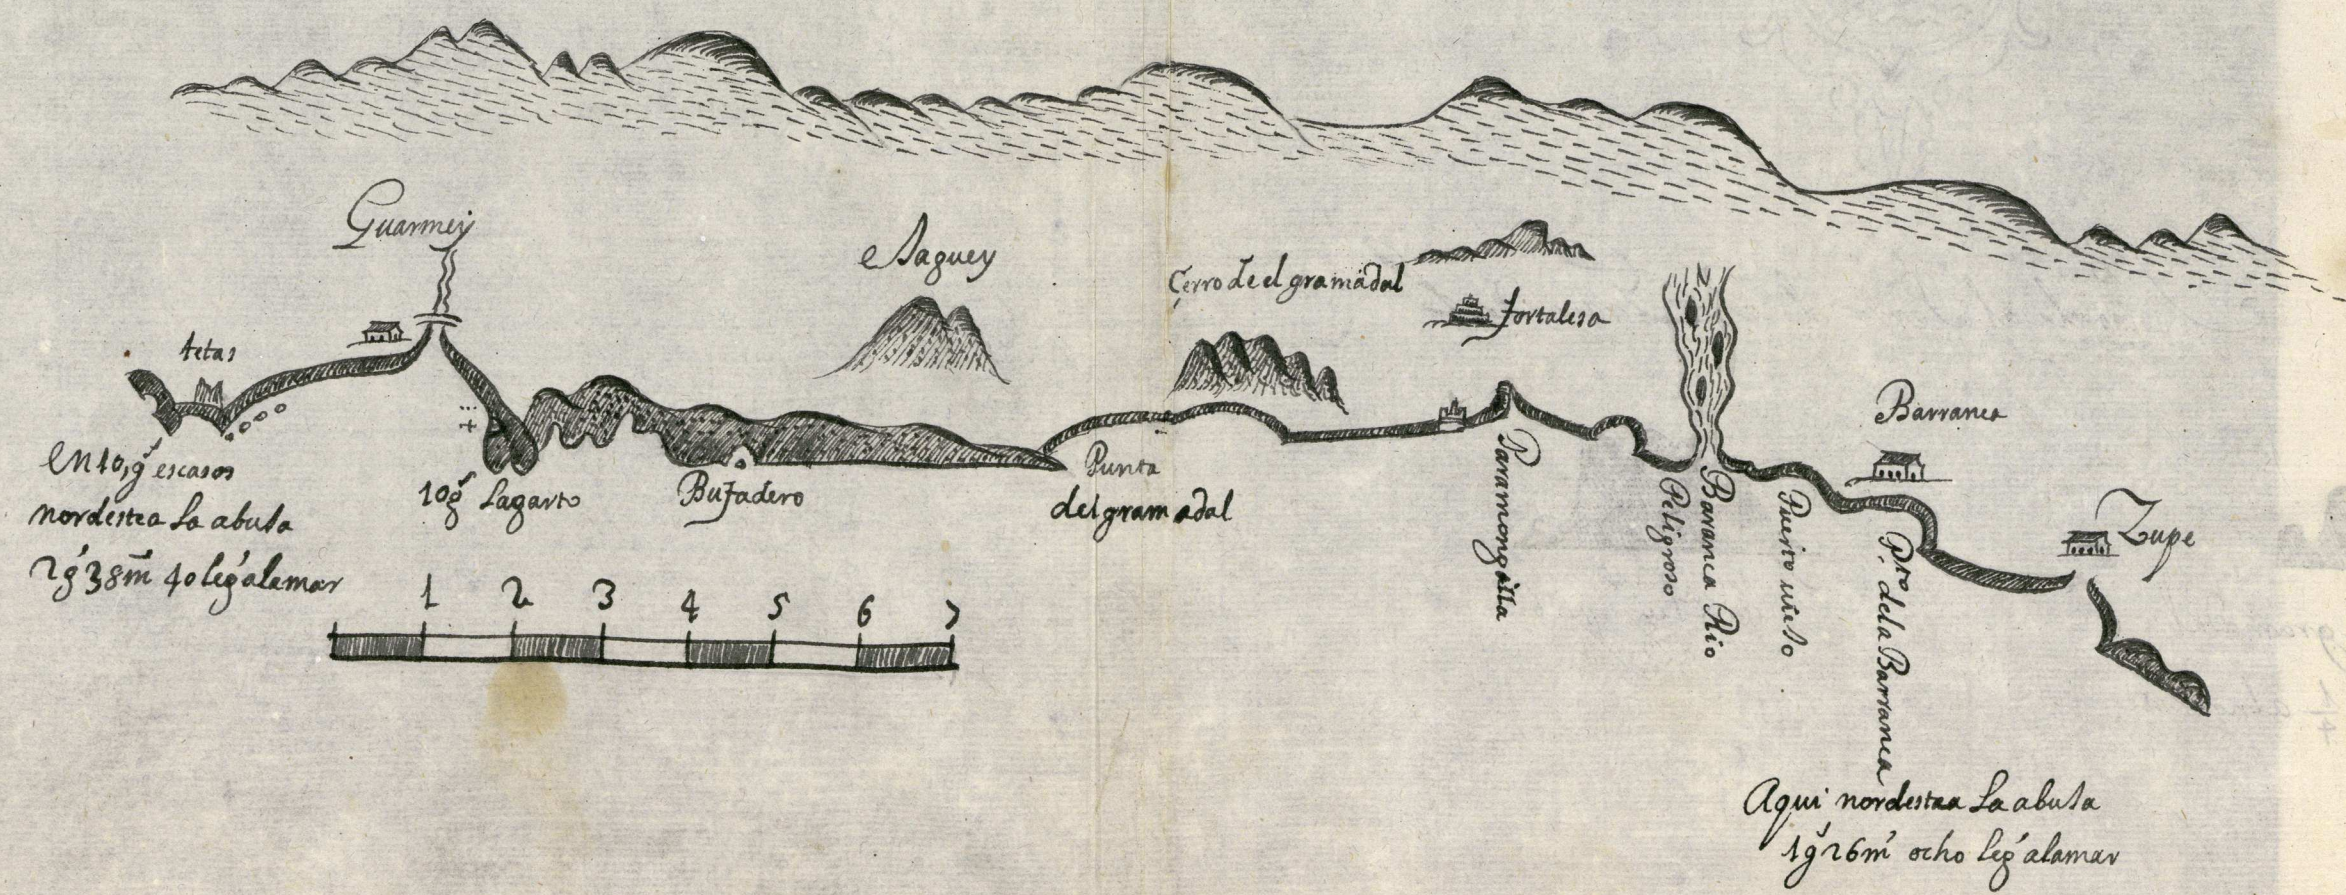 Guarmey
Saguey
Çerro de el gramadal
fortalesa
tetas
Barranca
Zupe
En 10 g.s escasos
nordestea La abuJa
2g.s 38m 40 leg.s alamar
10g.s Lagarto
BuJadero
Punta
del gramadal
Paramongilla
Baranca Rio
Peligroso
Puerto
P.to dela Barranca
1 2 3 4 5 6 7
Aqui nordestea La abuJa
1g.s 26m ocho leg.s alamar